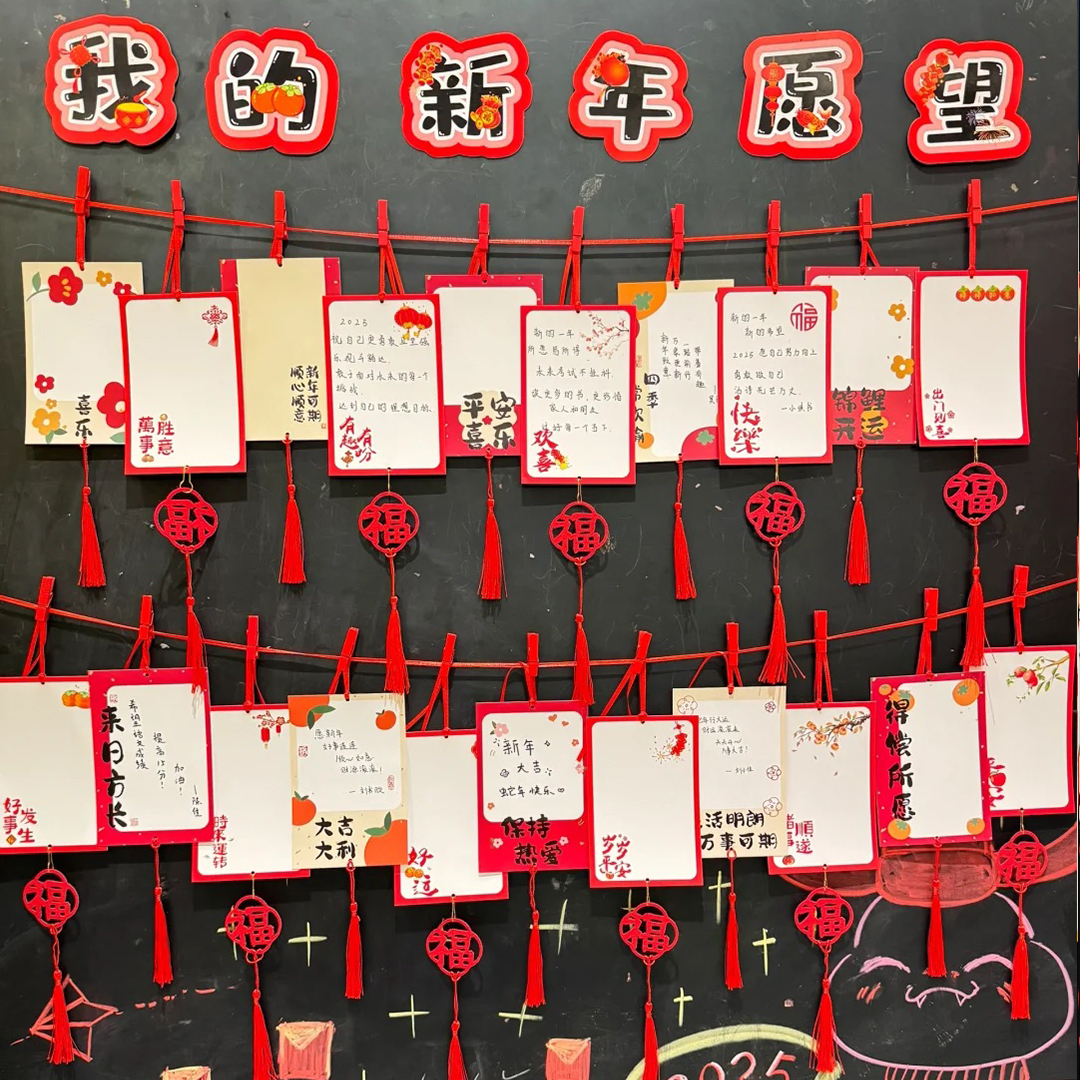 我的新年愿望
喜乐
萬事胜意
新年可期
顺心顺意
2025
祝自己更勇敢更坚强
乐观千锤达
敢于面对未来的每一个
挑战
达到自己的理想目标
有趣有盼
平安喜乐
新的一年
所愿易所得
未来考试不挂科
读更多的书、更珍惜
家人和朋友
过好每一个当下
欢喜
四季
新的一年
新的希望
2025 愿自己努力向上
勇敢做自己
快樂
福
锦鲤开运
出门见喜
福
福
福
福
福
好事发生
来日方长
希望语文成绩
提高15分！
加油！
時来運转
愿新年
好事连连
财源滚滚！
大吉
大利
好运
新年
大吉
蛇年快乐
保持
热爱
岁岁平安
财运滚滚来
万事大吉！
生活明朗
万事可期
諸事順遂
得偿所愿
福
福
福
福
福
福
2025